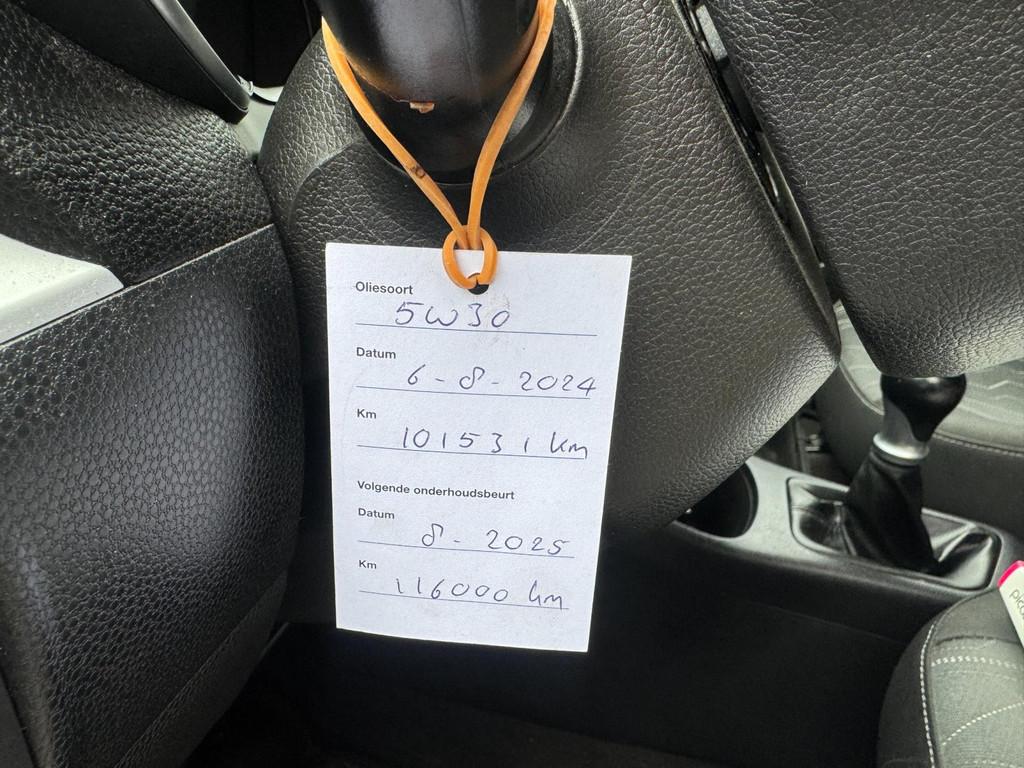 Oliesoort
5W30
Datum
6-8-2024
Km
101531 km
Volgende onderhoudsbeurt
Datum
8-2025
Km
116000 km